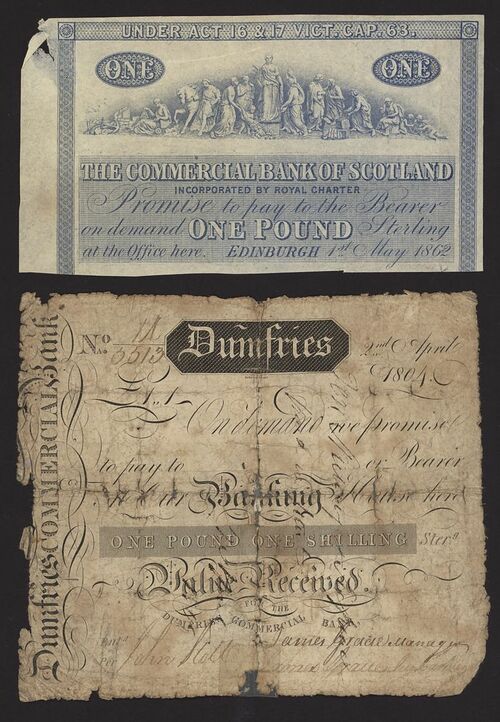 UNDER ACT 16 & 17 VICT. CAP. 63.
ONE ONE
THE COMMERCIAL BANK OF SCOTLAND
INCORPORATED BY ROYAL CHARTER
Promise to pay to the Bearer
on demand ONE POUND Sterling
at the Office here. EDINBURGH 1st May 1862
Dumfries COMMERCIAL Bank.
No. 5513 Dumfries 2nd April
1804.
£1,,1 On demand we promise
to pay to or Bearer
At Our Banking House here
ONE POUND ONE SHILLING Sterg
Value Received.
FOR THE
DUMFRIES COMMERCIAL BANK
Entd James Gracie Manager
Per John Holt